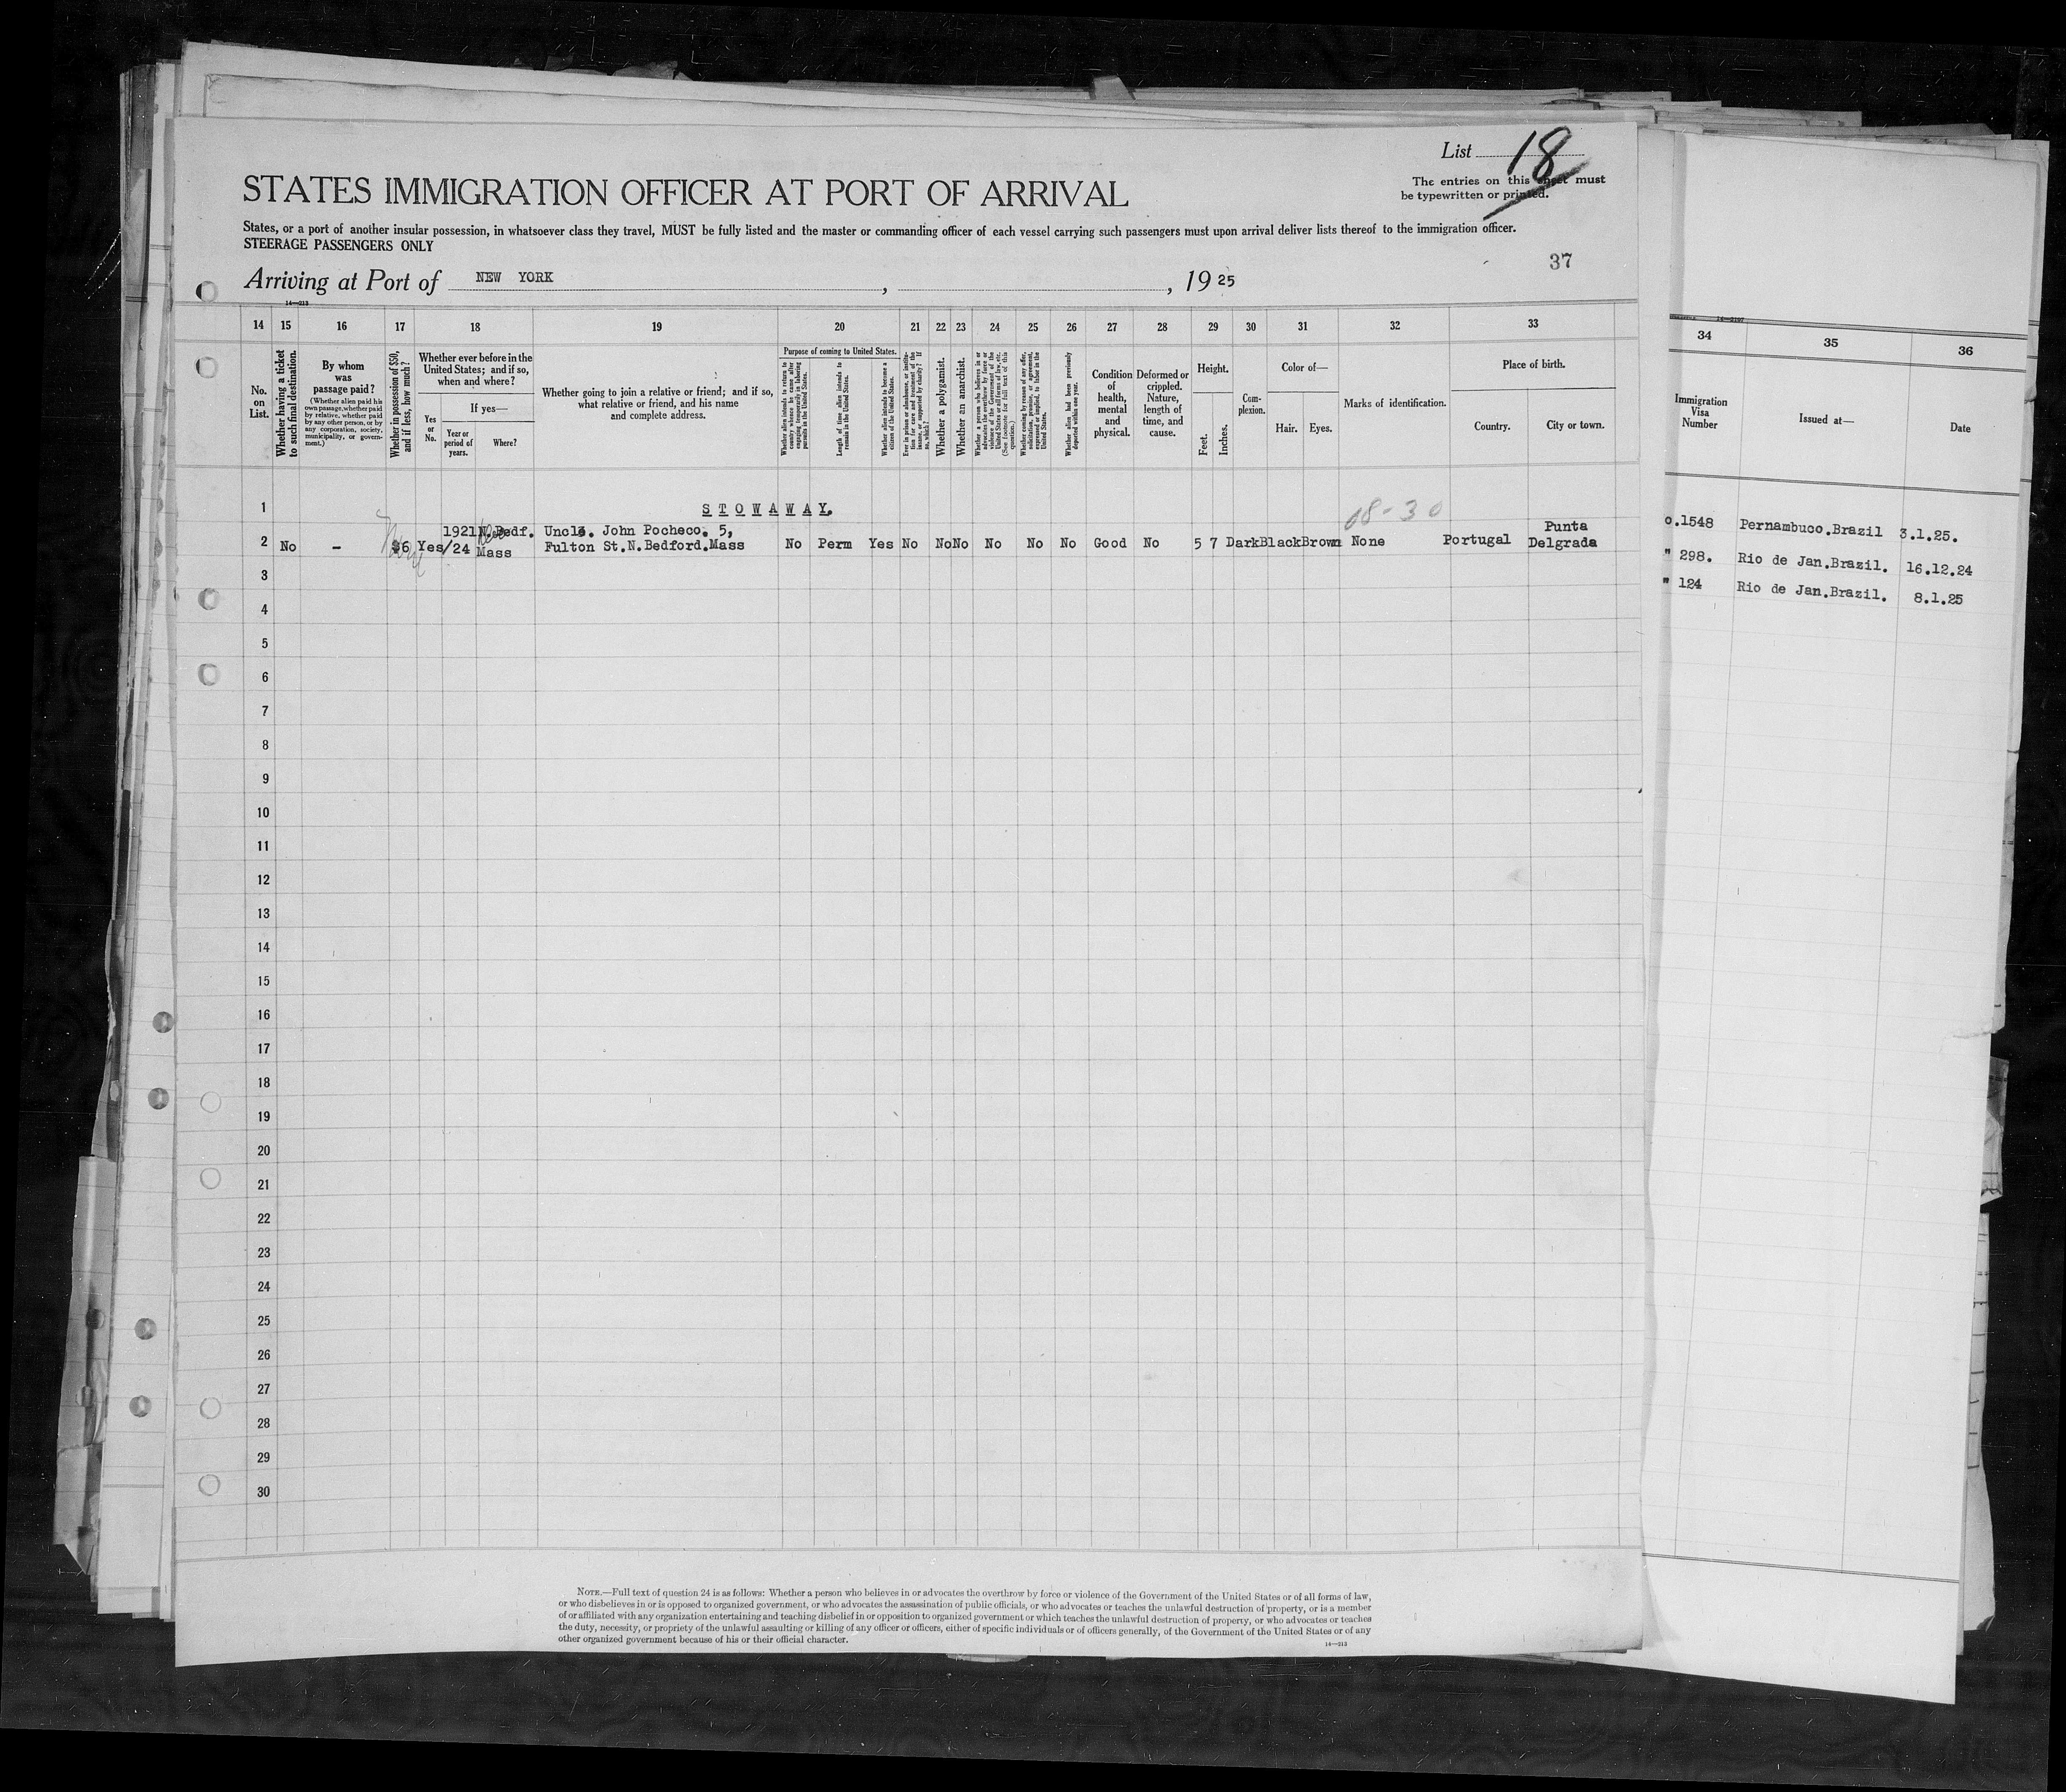 List 18
The entries on this sheet must
be typewritten or printed.
STATES IMMIGRATION OFFICER AT PORT OF ARRIVAL
States, or a port of another insular possession, in whatsoever class they travel, MUST be fully listed and the master or commanding officer of each vessel carrying such passengers must upon arrival deliver lists thereof to the immigration officer.
STEERAGE PASSENGERS ONLY
37
Arriving at Port of NEW YORK , , 19 25
14—213
14 15 16 17 18 19 20 21 22 23 24 25 26 27 28 29 30 31 32 33
No. on List.
Whether having a ticket to such final destination.
By whom was passage paid?
(Whether alien paid his own passage, whether paid by relative, whether paid by any other person, or by any corporation, society, municipality, or government.)
Whether in possession of $50, and if less, how much?
Whether ever before in the United States; and if so, when and where?
Yes or No.
If yes—
Year or period of years.
Where?
Whether going to join a relative or friend; and if so, what relative or friend, and his name and complete address.
Purpose of coming to United States.
Whether alien intends to return to country whence he came after engaging temporarily in laboring pursuits in the United States.
Length of time alien intends to remain in the United States.
Whether alien intends to become a citizen of the United States.
Ever in prison or almshouse, or institution for care and treatment of the insane, or supported by charity? If so, which?
Whether a polygamist.
Whether an anarchist.
Whether a person who believes in or advocates the overthrow by force or violence of the Government of the United States or all forms of law, etc. (See footnote for full text of this question.)
Whether coming by reason of any offer, solicitation, promise, or agreement, expressed or implied, to labor in the United States.
Whether alien had been previously deported within one year.
Condition of health, mental and physical.
Deformed or crippled. Nature, length of time, and cause.
Height.
Feet.
Inches.
Complexion.
Color of—
Hair.
Eyes.
Marks of identification.
Place of birth.
Country.
City or town.
34 35 36
Immigration Visa Number
Issued at—
Date
1
STOWAWAY.
08-30
1921 N.Bedf. Uncle. John Pocheco. 5, Punta
2 No – $6 Yes /24 Mass Fulton St.N.Bedford.Mass No Perm Yes No No No No No No Good No 5 7 Dark Black Brown None Portugal Delgrada
o.1548 Pernambuco.Brazil 3.1.25.
" 298. Rio de Jan.Brazil. 16.12.24
" 124 Rio de Jan.Brazil. 8.1.25
3
4
5
6
7
8
9
10
11
12
13
14
15
16
17
18
19
20
21
22
23
24
25
26
27
28
29
30
NOTE.—Full text of question 24 is as follows: Whether a person who believes in or advocates the overthrow by force or violence of the Government of the United States or of all forms of law,
or who disbelieves in or is opposed to organized government, or who advocates the assassination of public officials, or who advocates or teaches the unlawful destruction of property, or is a member
of or affiliated with any organization entertaining and teaching disbelief in or opposition to organized government or which teaches the unlawful destruction of property, or who advocates or teaches
the duty, necessity, or propriety of the unlawful assaulting or killing of any officer or officers, either of specific individuals or of officers generally, of the Government of the United States or of any
other organized government because of his or their official character.
14—213